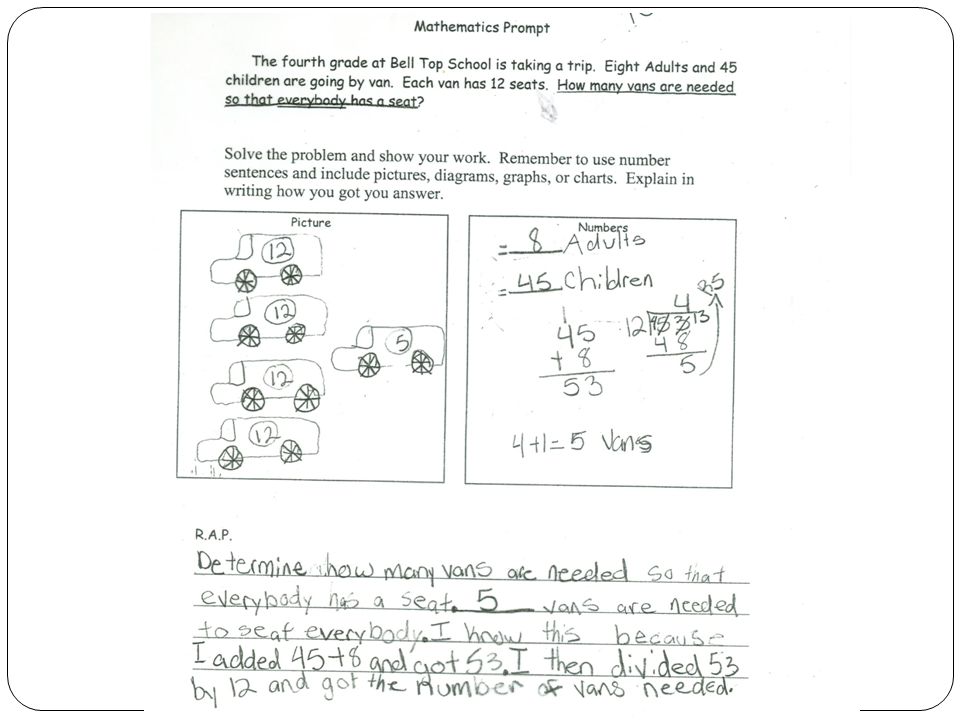 Mathematics Prompt
The fourth grade at Bell Top School is taking a trip. Eight Adults and 45
children are going by van. Each van has 12 seats. How many vans are needed
so that everybody has a seat?
Solve the problem and show your work. Remember to use number
sentences and include pictures, diagrams, graphs, or charts. Explain in
writing how you got you answer.
Picture
12
12
12
12
5
Numbers
= 8 Adults
= 45 Children
1
45
+ 8
53
4 R5
12 53
4 13
48
5
4+1=5 Vans
R.A.P.
Determine how many vans are needed so that
everybody has a seat. 5 vans are needed
to seat everybody. I know this because
I added 45+8 and got 53. I then divided 53
by 12 and got the number of vans needed.